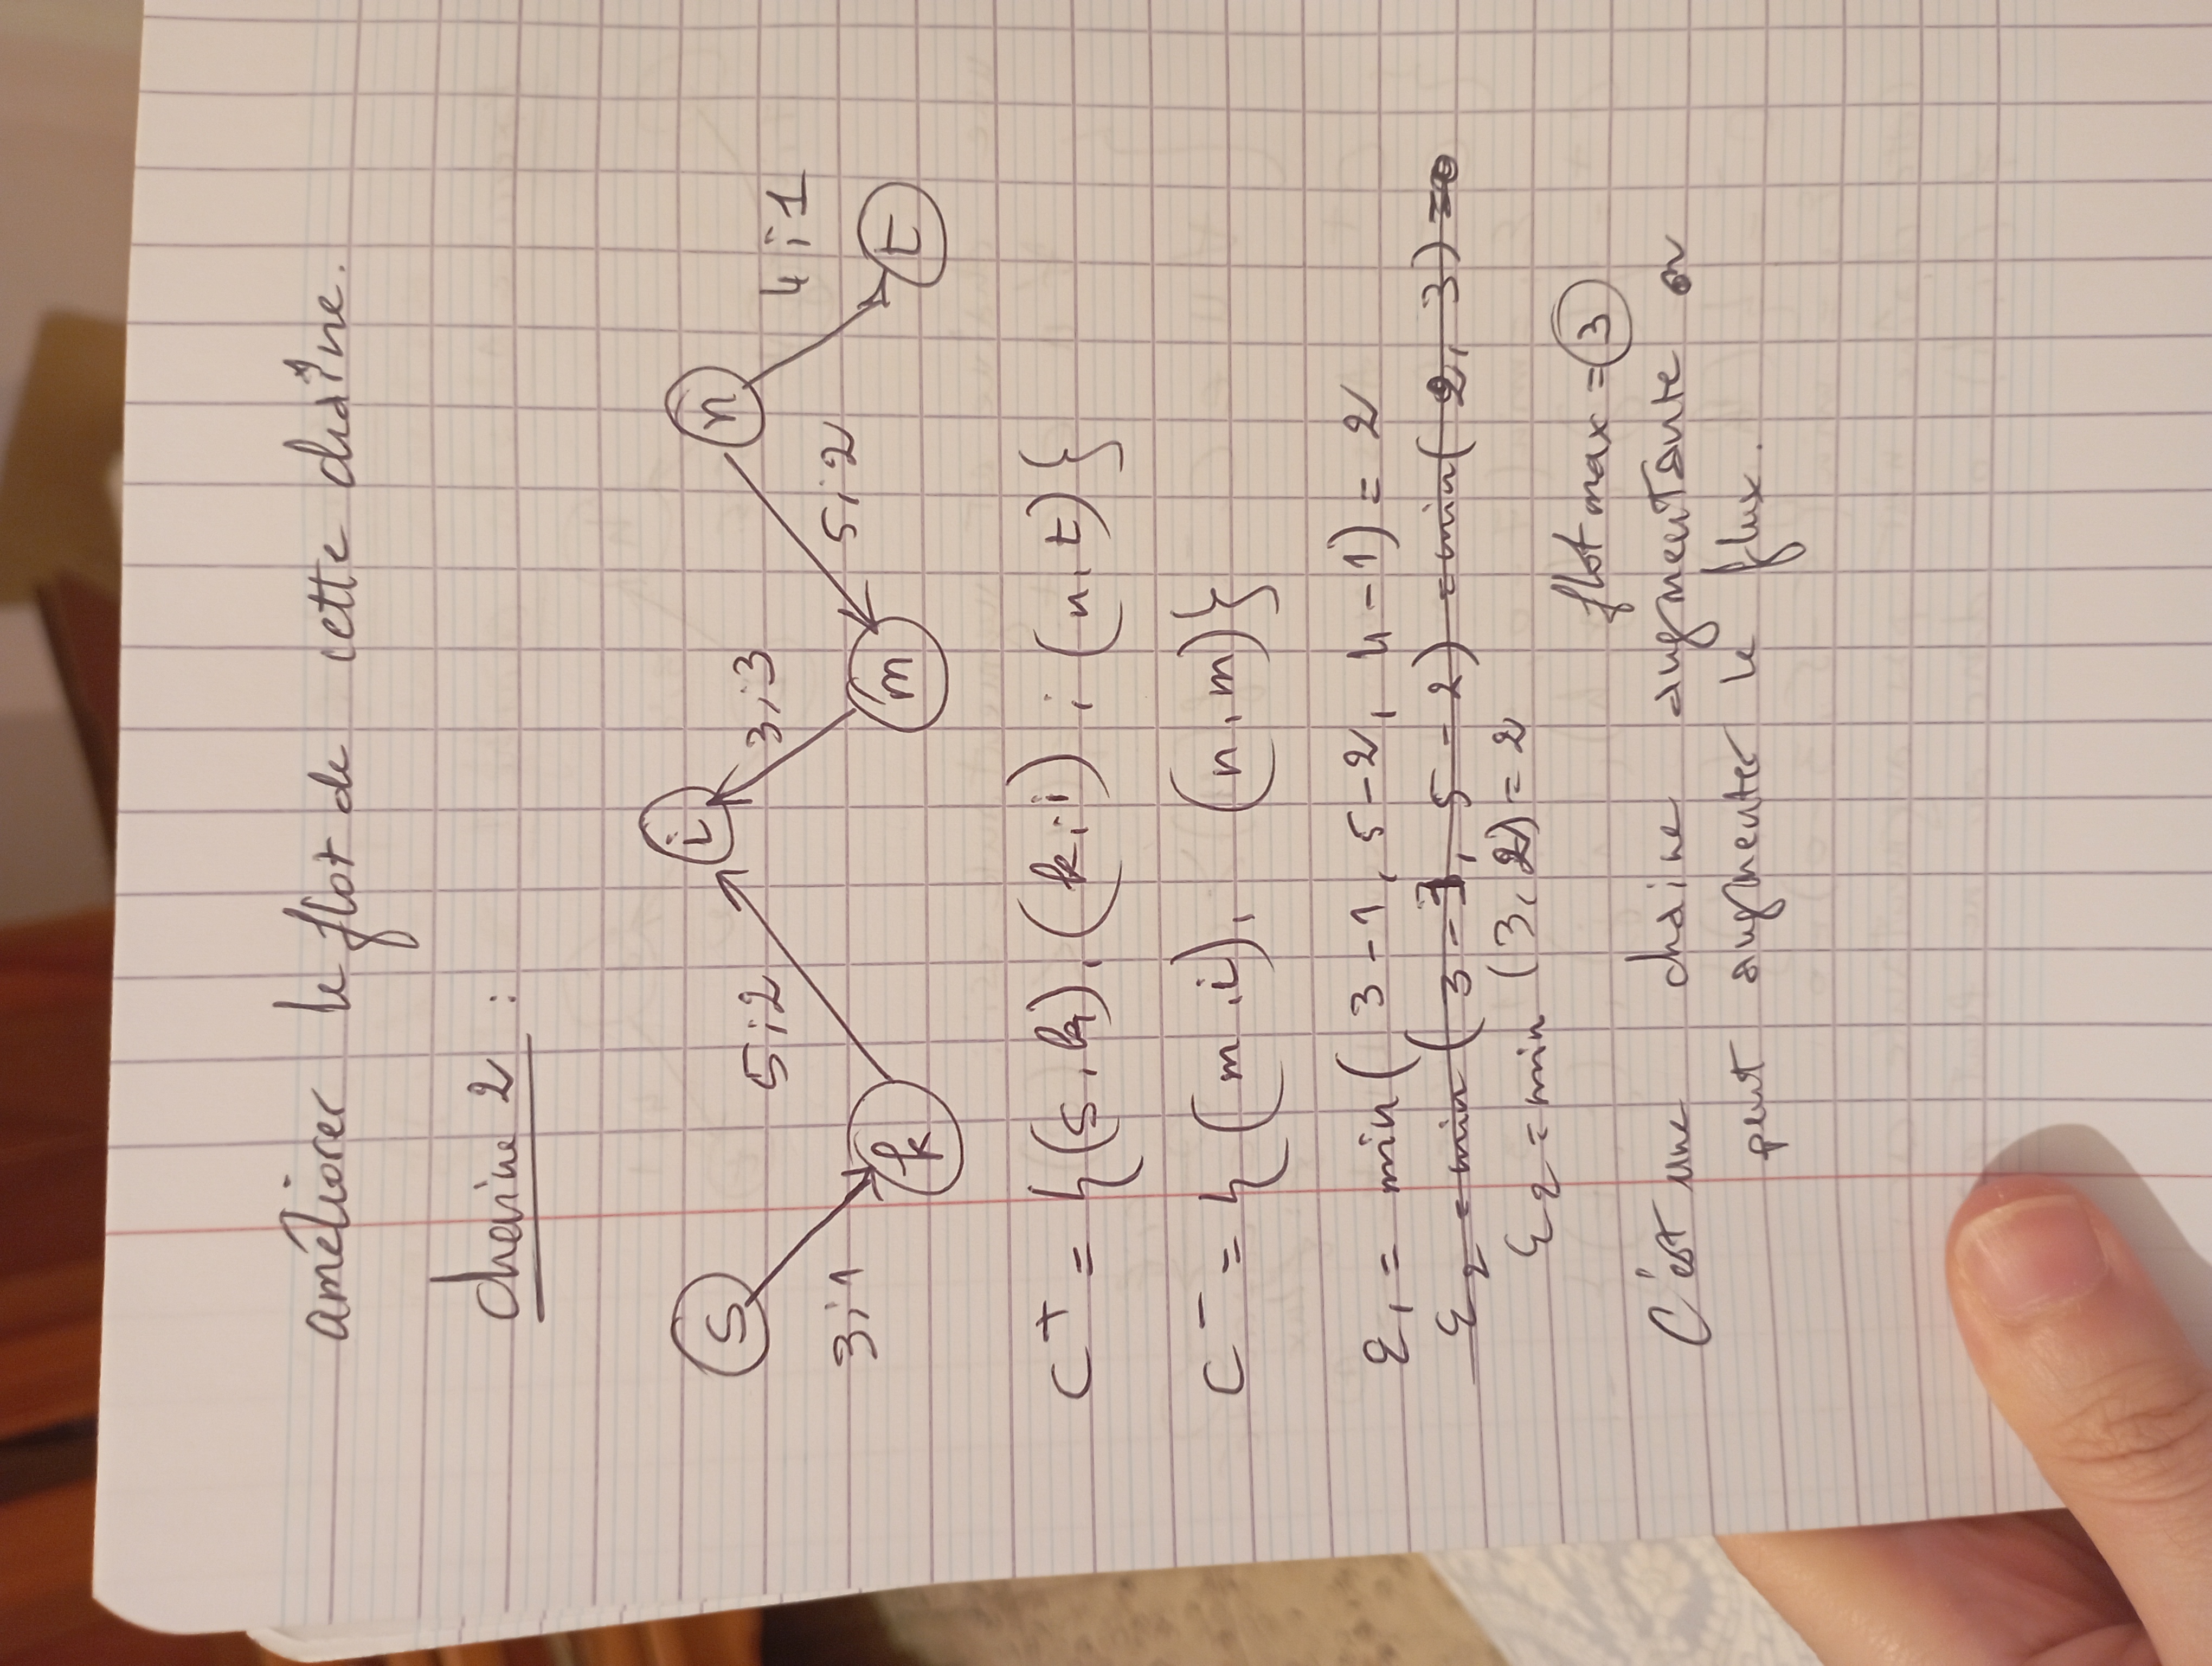 améliorer le flot de cette chaîne.
chaine 2 :
s i n
5;2 3;3 4;1
3;1 5;2
k m t
C⁺ = {(s,k), (k,i) ; (n,t)}
C⁻ = {(m,i), (n,m)}
ε₁ = min(3-1, 5-2, 4-1) = 2
ε₂ = min(3-3, 5-2) = min(2, 3) = 0
ε₂ = min (3, 2) = 2
flot max = 3
C'est une chaine augmentante on
peut augmenter le flux.